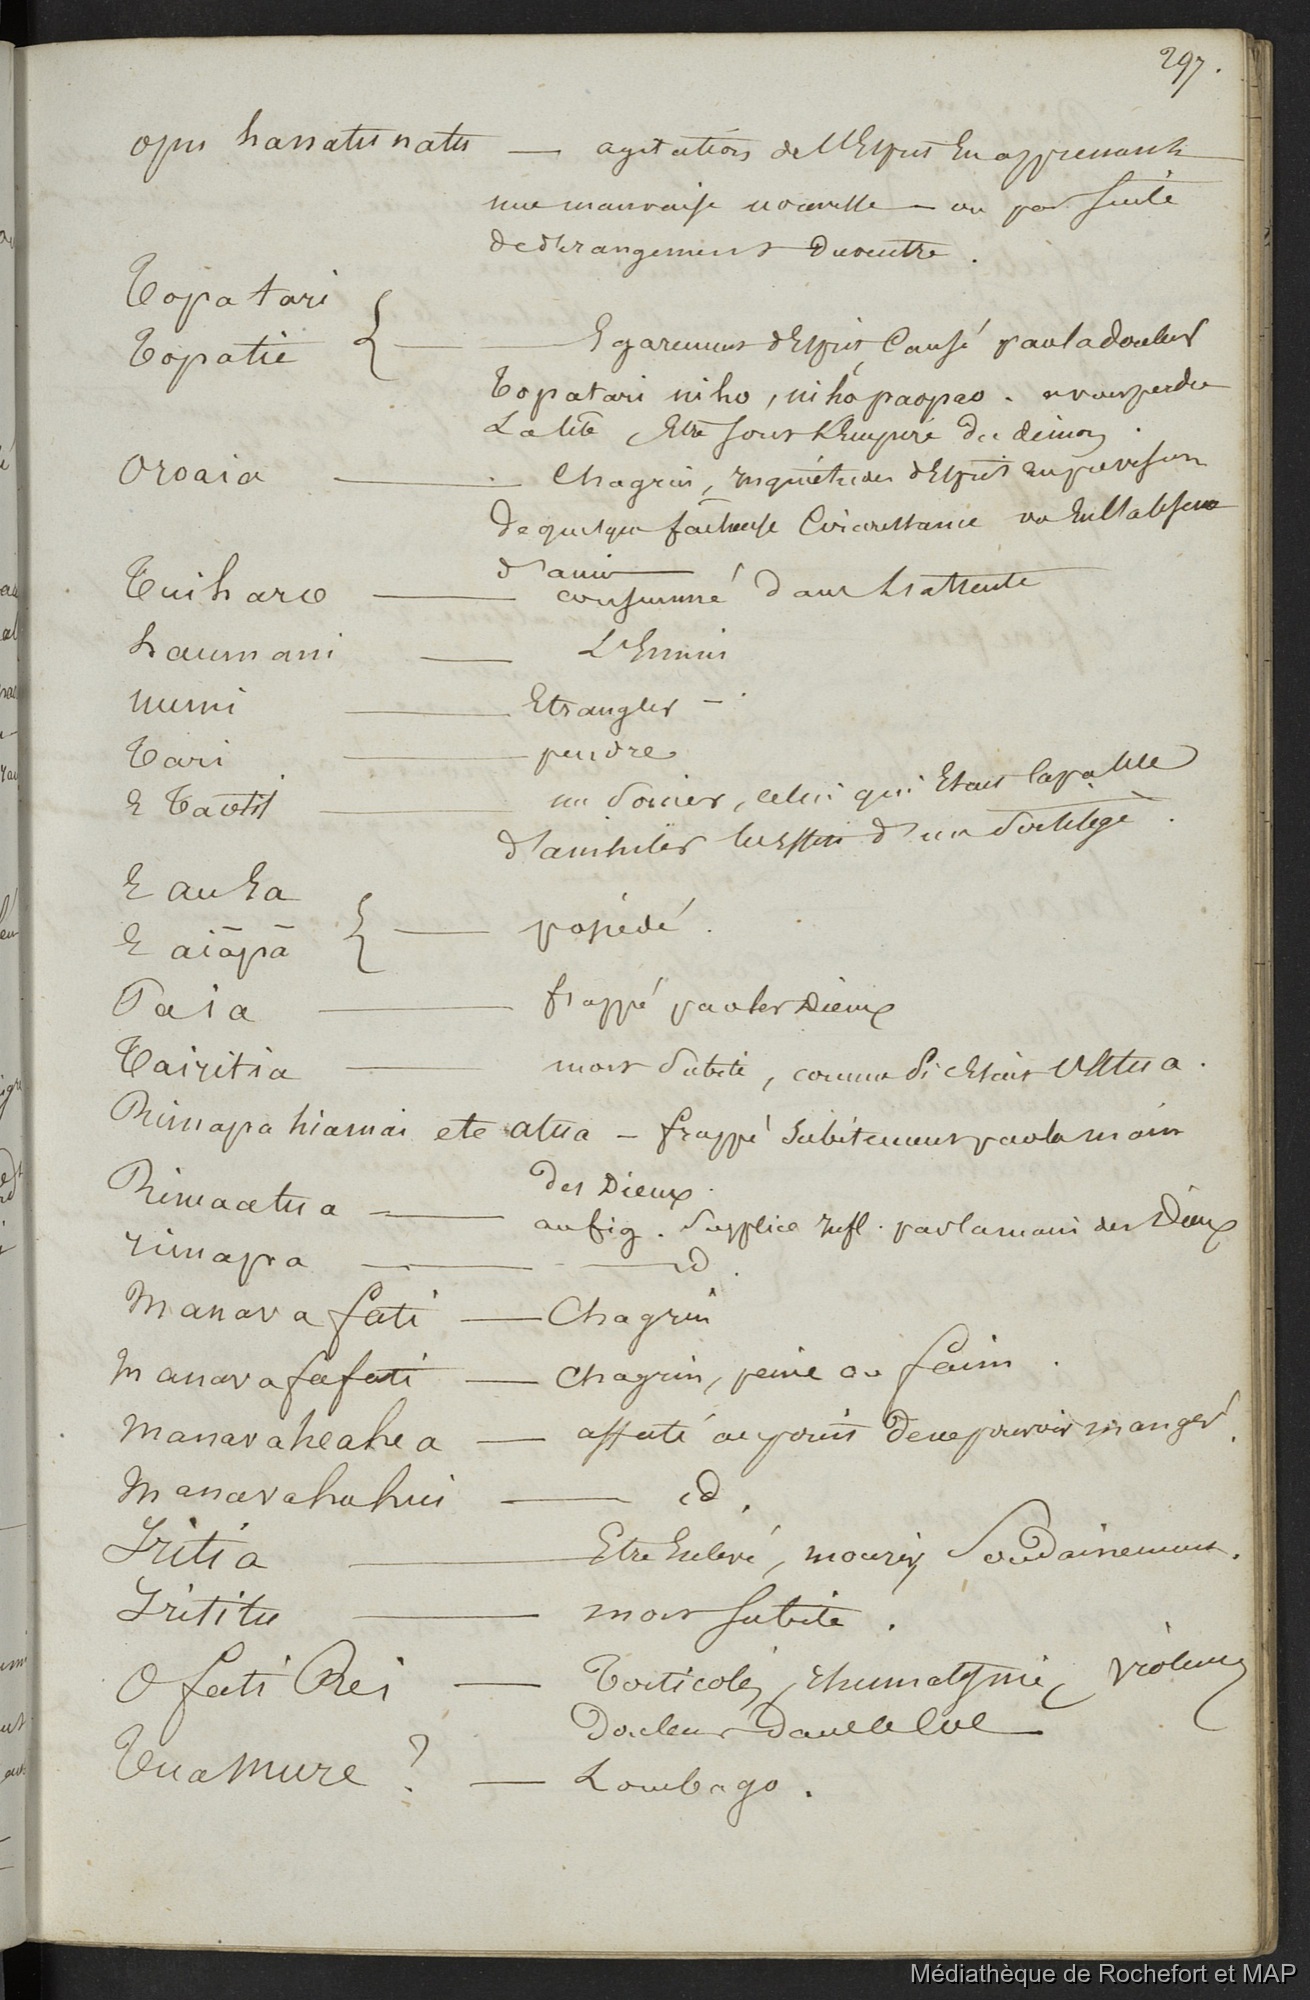 297.
opu hanatunatu — agitation de l'Esprit En apprenant
une mauvaise nouvelle — ou par suite
de dérangement du ventre.
Topatari
Topatie { — Egarement d'Esprit, Causé par la douleur
Topatari niho, niho paopao. avoir perdu
La tête, Etre sous L'Empire du démon.
Oroaia — Chagrin, inquiétudes d'Esprit en prévision
de quelque facheuse Circonstance ou En l'absence
d'amis
Tuiharo — consummé dans L'attente
haumani — L'Ennui
numi — Etrangler —
Tari — pendre
E Taotu — un Sorcier, celui qui Etait Capable
d'anihiler les Effets d'un Sortilège.
E au Ea
E aiāpā { — possédé.
Paia — frappé par les Dieux
Tairitia — mort Subite, comme Si c'était l'Atua.
Rimapa hiamai ete atua — frappé Subitement par la main
des Dieux.
Rimaatua — au fig. Supplice infl. par la main des Dieux
rimapa — id.
Manava fati — Chagrin
Manavafafati — Chagrin, peine ou faim.
Manavaheahea — affecté au point de ne pouvoir manger.
Manavahahui — id.
Iritia — Etre Enlevé, mourir Soudainement.
Irititu — mort Subite.
O fati Rei — Torticolis, rhumatisme, violente
Douleur dans le Col
Tuamure ? — Lombago.
Médiathèque de Rochefort et MAP